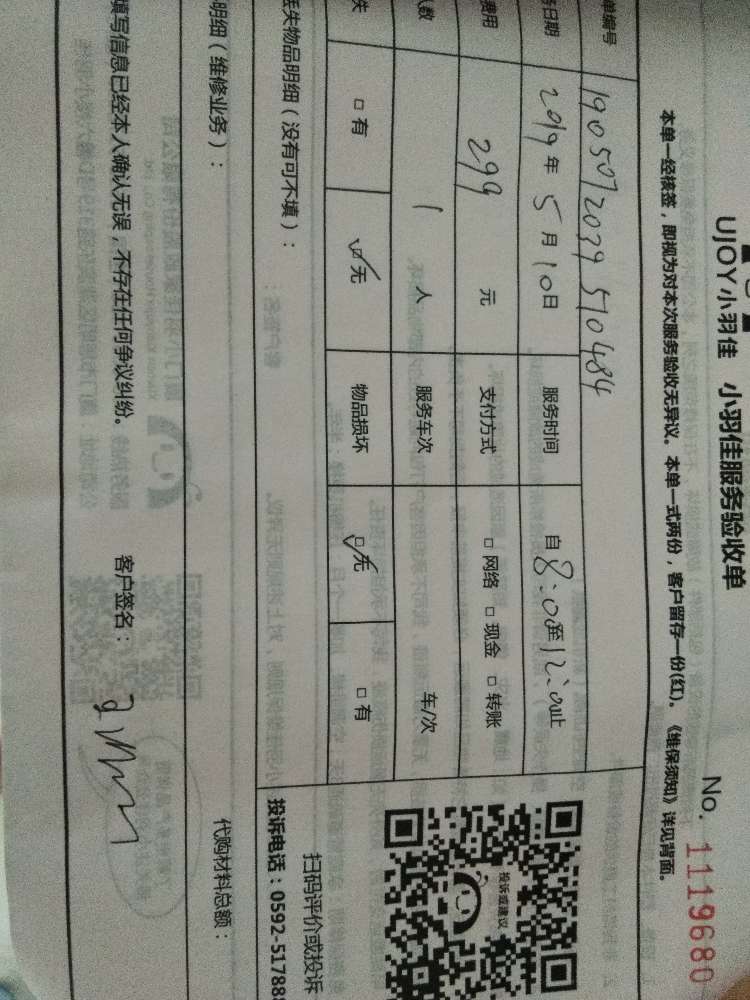 UJOY小羽佳 小羽佳服务验收单
No. 1119680
本单一经核签，即视为对本次服务验收无异议。本单一式两份，客户留存一份(红)。《维保须知》详见背面。
单编号 1905072039510484
务日期 2019年5月10日 服务时间 自8:0至12:0止
费用 299 元 支付方式 □网络 □现金 □转账
人数 1 人 服务车次 车/次
失 □有 ☑无 物品损坏 ☑无 □有
投诉或建议
扫码评价或投诉
投诉电话：0592-517888
丢失物品明细（没有可不填）：
明细（维修业务）： 代购材料总额：
填写信息已经本人确认无误，不存在任何争议纠纷。 客户签名：